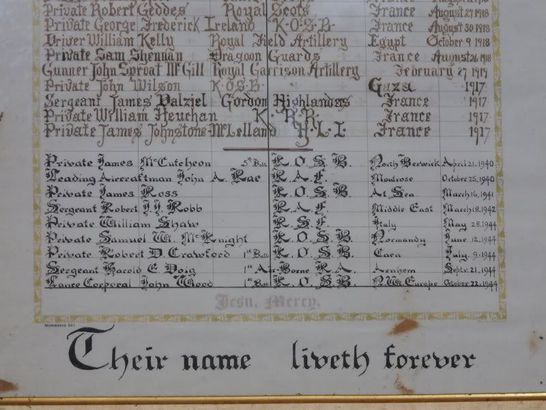 Private Robert Geddes Royal Scots France August 27 1918
Private George Frederick Ireland K.O.S.B. France August 30 1918
Driver William Kelly Royal Field Artillery Egypt October 9 1918
Private Sam Shennan Dragoon Guards France August 26 1918
Gunner John Sproat McGill Royal Garrison Artillery February 27 1919
Private John Wilson K.O.S.B. Gaza 1917
Sergeant James Dalziel Gordon Highlanders France 1917
Private William Heuchan K. R. R. France 1917
Private James Johnstone McLelland H. L. I. France 1917
Private James McCutcheon 5th Batt K. O. S. B. North Berwick April 21. 1940
Leading Aircraftman John A. Rae R. A. F. Montrose October 25. 1940
Private James Ross K. O. S. B. At Sea March 16. 1941
Sergeant Robert J.J. Robb R. A. F. Middle East March 18. 1942
Private William Shaw R. S. F. Italy May 28. 1944
Private Samuel W. McKnight K. O. S. B. Normandy June 12. 1944
Private Robert D. Crawford 1st Batt K. O. S. B. Caen July. 9. 1944
Sergeant Harold E. Doig 1st Air-Borne R. A. Arnhem Sept. 21. 1944
Lance Corporal John Wood 1st Batt K. O. S. B. N.W. Europe October 22. 1944
Jesu, Mercy.
Their name liveth forever